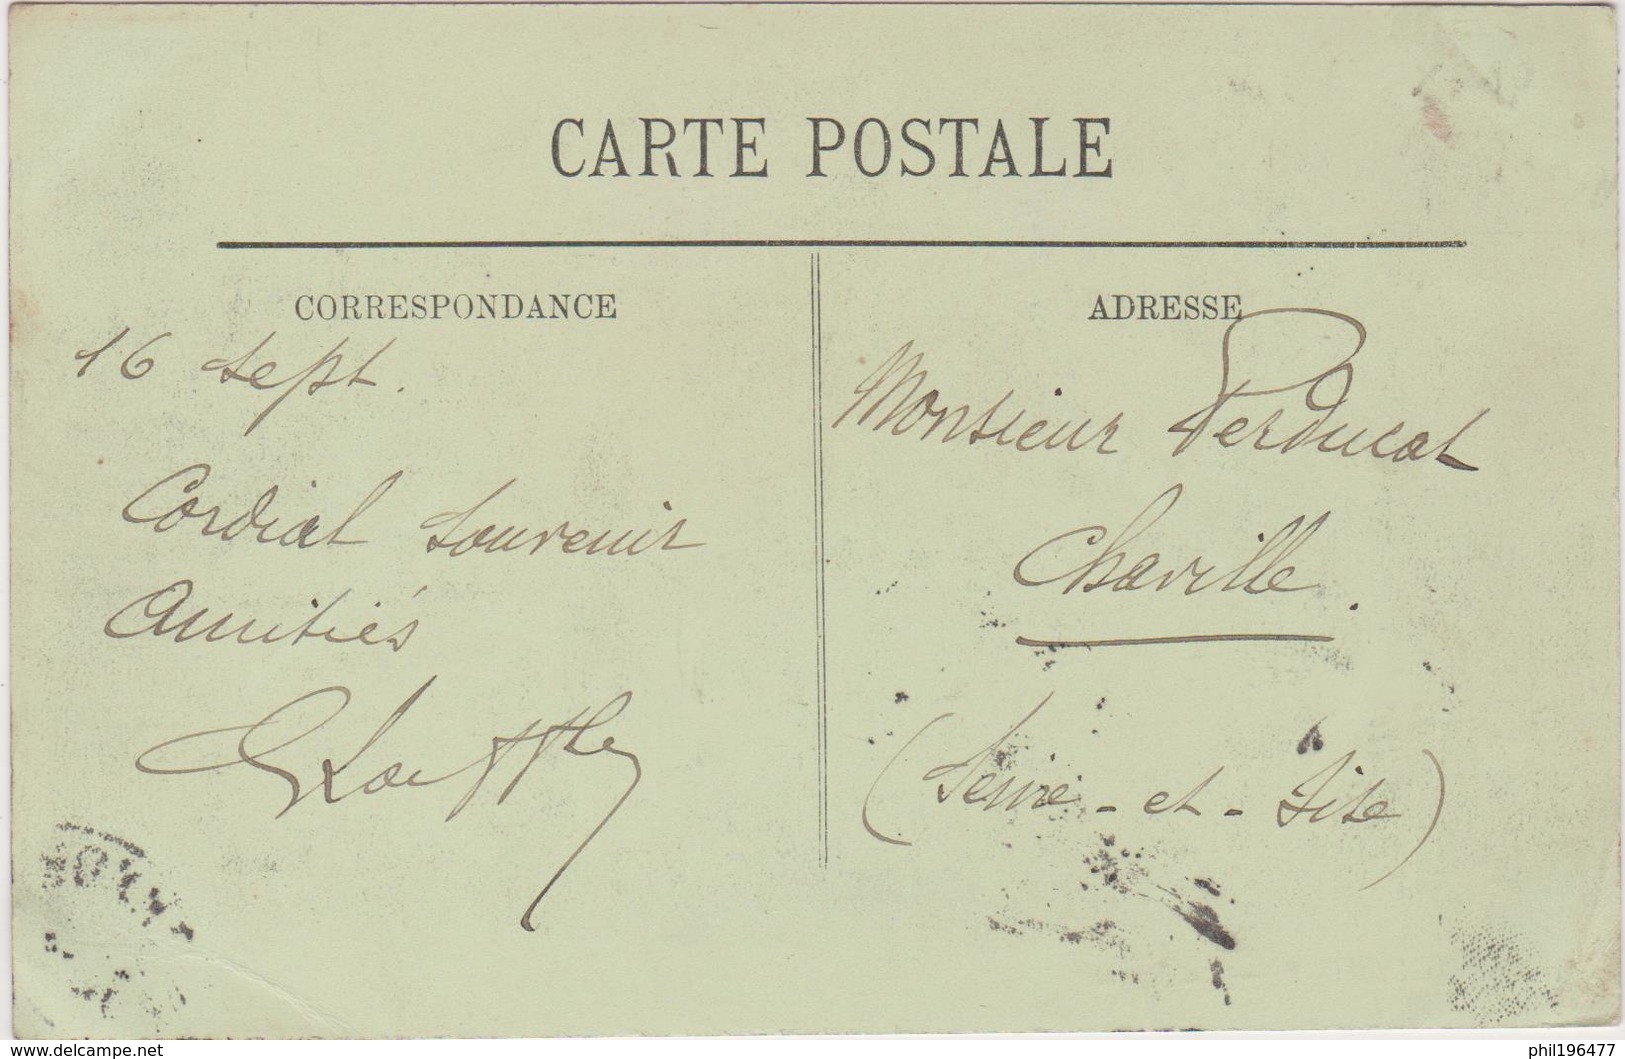 CARTE POSTALE
CORRESPONDANCE
16 sept.
Cordial souvenir
Amitiés
ADRESSE
Monsieur Perducat
Chaville.
(Seine-et-Oise)
www.delcampe.net
phil196477